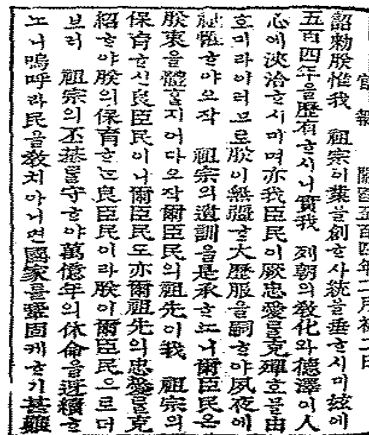 官報 開國五百四年二月初二日
詔勅朕惟我 祖宗이業을創ᄒᆞ사統을垂ᄒᆞ시미玆에
五百四年을歷有ᄒᆞ시니實我 列朝의敎化와德澤이人
心에浹洽ᄒᆞ시미며亦我臣民이厥忠愛를克殫ᄒᆞ믈由
호미라이러므로朕이無疆ᄒᆞᆫ大歷服을嗣ᄒᆞ야夙夜에
祗懼ᄒᆞ야오작 祖宗의遺訓을是承ᄒᆞ노니爾臣民은
朕衷을體ᄒᆞᆯ지어다오작爾臣民의祖先이我 祖宗의
保育ᄒᆞ신良臣民이니爾臣民도亦爾祖先의忠愛를克
紹ᄒᆞ야朕의保育ᄒᆞᄂᆞᆫ良臣民이라朕이爾臣民으로더
브러 祖宗의丕基를守ᄒᆞ야萬億年의休命을迓續ᄒᆞ
노니嗚呼라民을敎치아니면國家를鞏固케ᄒᆞ기甚難